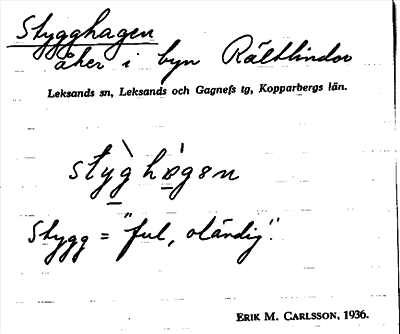 Stygghagen
åker i byn Rältlindor
Leksands sn, Leksands och Gagnefs tg, Kopparbergs län.
stỳg hàgen
Stygg = "ful, oländig".
ERIK M. CARLSSON, 1936.